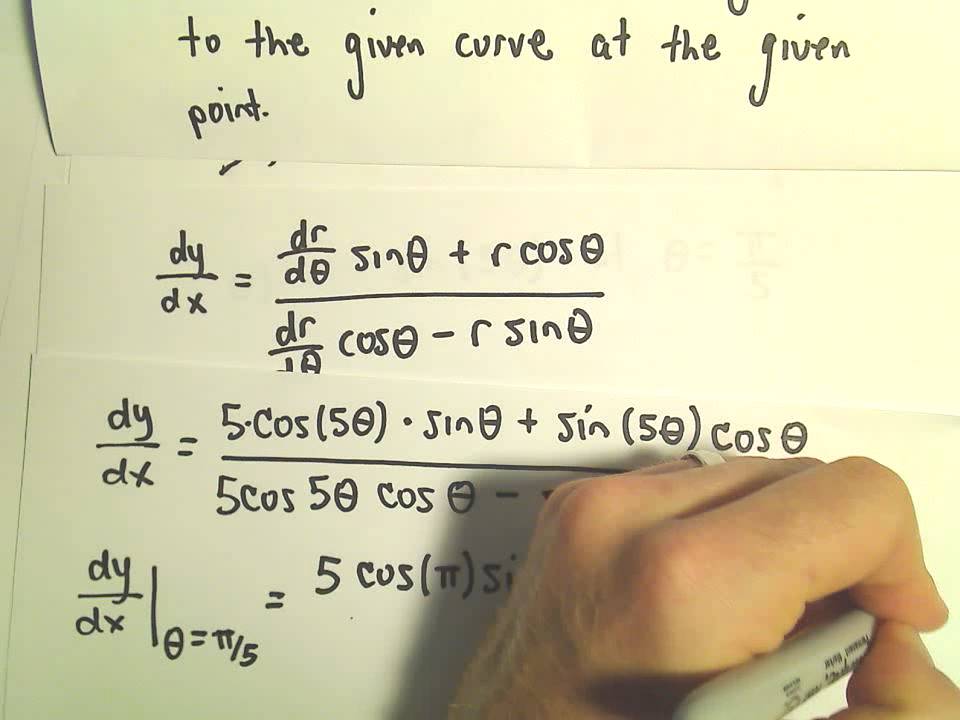 to the given curve at the given
point.
dy/dx = (dr/dθ sinθ + r cosθ) / (dr/dθ cosθ - r sinθ)
θ = π/5
dy/dx = (5·cos(5θ) · sinθ + sin(5θ) cosθ) / (5cos 5θ cos θ -
dy/dx |θ=π/5 = 5 cos(π) si